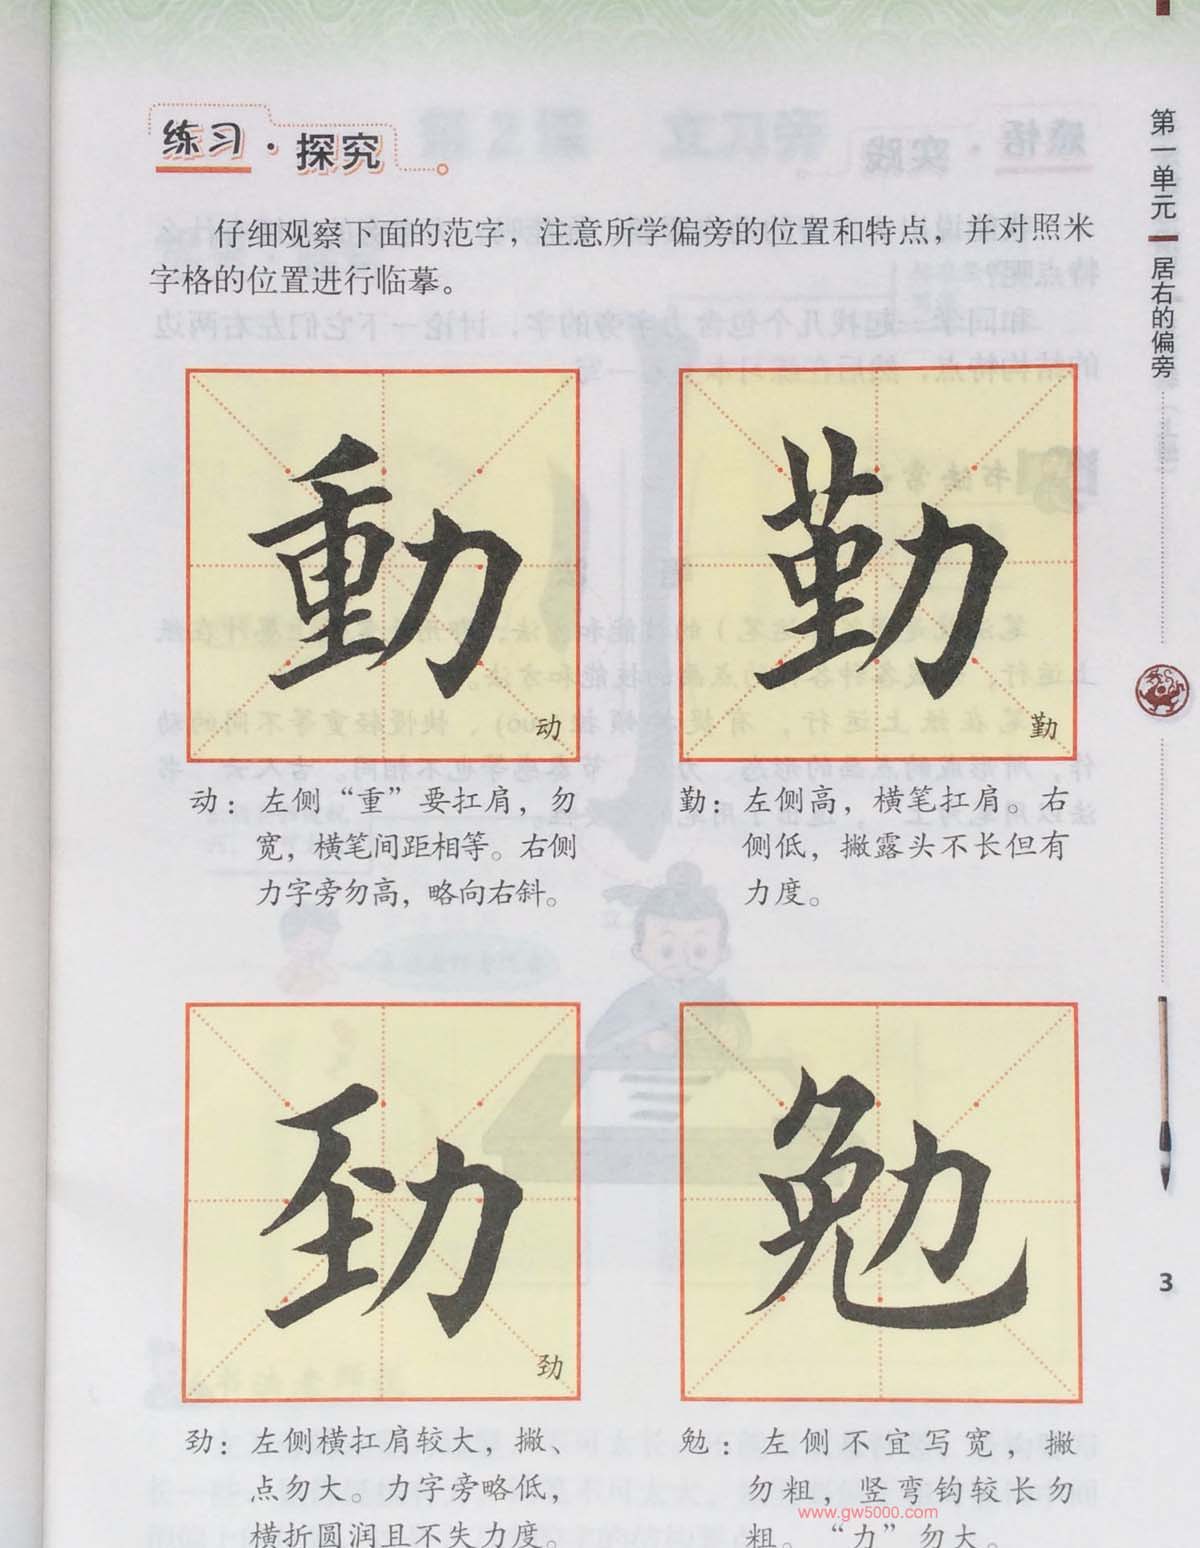 练习·探究
仔细观察下面的范字，注意所学偏旁的位置和特点，并对照米
字格的位置进行临摹。
動
动
勤
勤
动：左侧“重”要扛肩，勿
宽，横笔间距相等。右侧
力字旁勿高，略向右斜。
勤：左侧高，横笔扛肩。右
侧低，撇露头不长但有
力度。
劲
勉
劲：左侧横扛肩较大，撇、
点勿大。力字旁略低，
横折圆润且不失力度。
勉：左侧不宜写宽，撇
勿粗，竖弯钩较长勿
粗。“力”勿大。
www.gw5000.com
第一单元
居右的偏旁
3